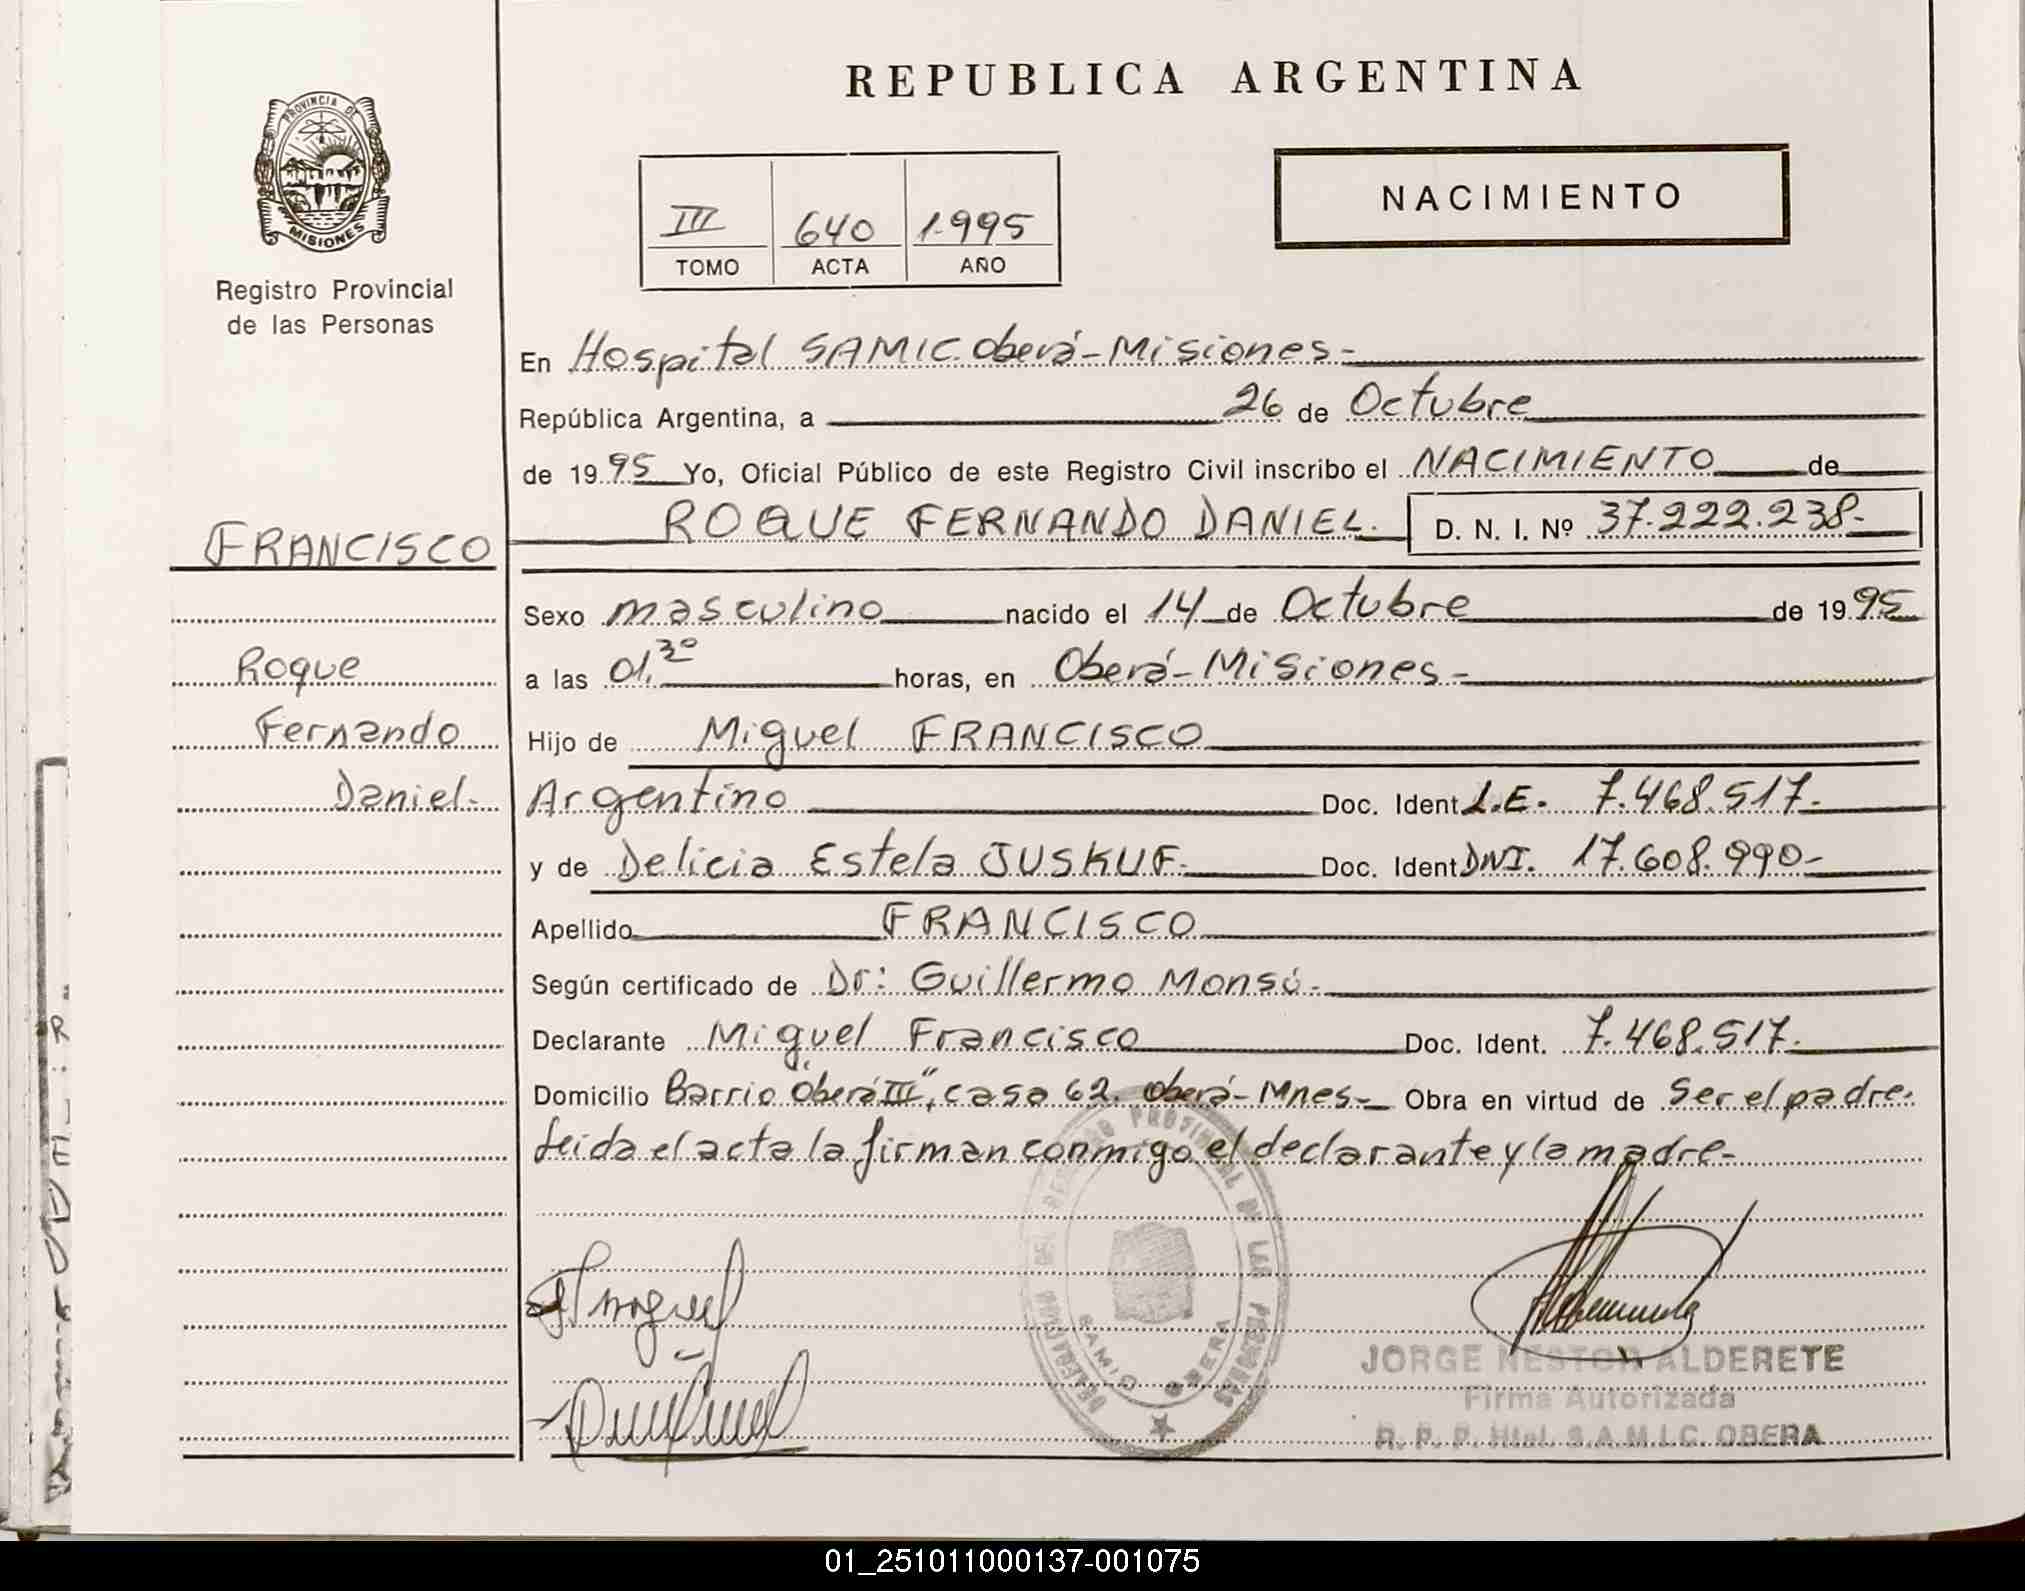 REPUBLICA ARGENTINA
PROVINCIA DE
MISIONES
Registro Provincial
de las Personas
NACIMIENTO
III 640 1.995
TOMO ACTA AÑO
En Hospital SAMIC. Oberá-Misiones-
República Argentina, a 26 de Octubre
de 1995 Yo, Oficial Público de este Registro Civil inscribo el NACIMIENTO de
FRANCISCO
ROQUE FERNANDO DANIEL. D. N. I. Nº 37.222.238-
Sexo masculino nacido el 14 de Octubre de 1995
Roque
a las 01.30 horas, en Oberá-Misiones-
Fernando
Hijo de Miguel FRANCISCO
Daniel-
Argentino Doc. Ident L.E. 7.468.517-
y de Delicia Estela JUSKUF- Doc. Ident DNI. 17.608.990-
Apellido FRANCISCO
Según certificado de Dr: Guillermo Monsó-
Declarante Miguel Francisco Doc. Ident. 7.468.517-
Domicilio Barrio "Oberá III", casa 62. Oberá-Mnes- Obra en virtud de Ser el padre-
Leida el acta la firman conmigo el declarante y la madre-
DEL REGISTRO PROVINCIAL DE LAS PERSONAS
SAMIC OBERA
JORGE NESTOR ALDERETE
Firma Autorizada
R. P. P. Htal. S.A.M.I.C. OBERA
01_251011000137-001075